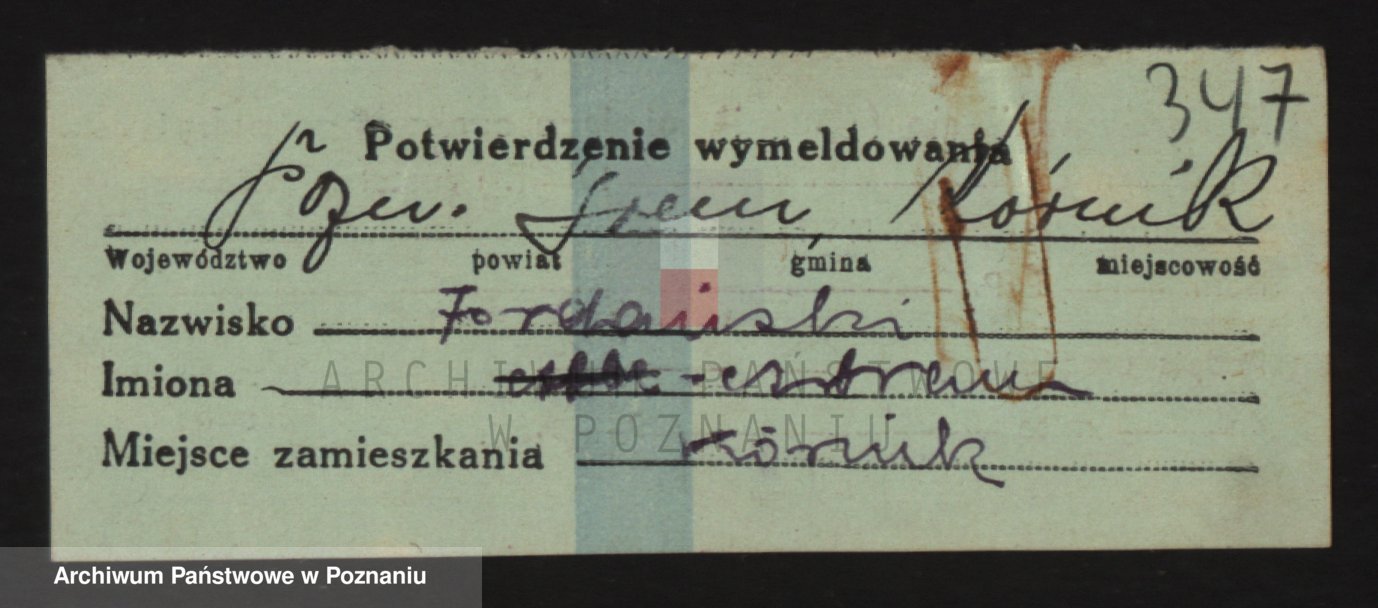 347
Potwierdzenie wymeldowania
Pozn. Śrem, Kórnik
Województwo powiat gmina miejscowość
Nazwisko Jordański
Imiona
Miejsce zamieszkania Kórnik
ARCHIWUM PAŃSTWOWE
W POZNANIU
Archiwum Państwowe w Poznaniu